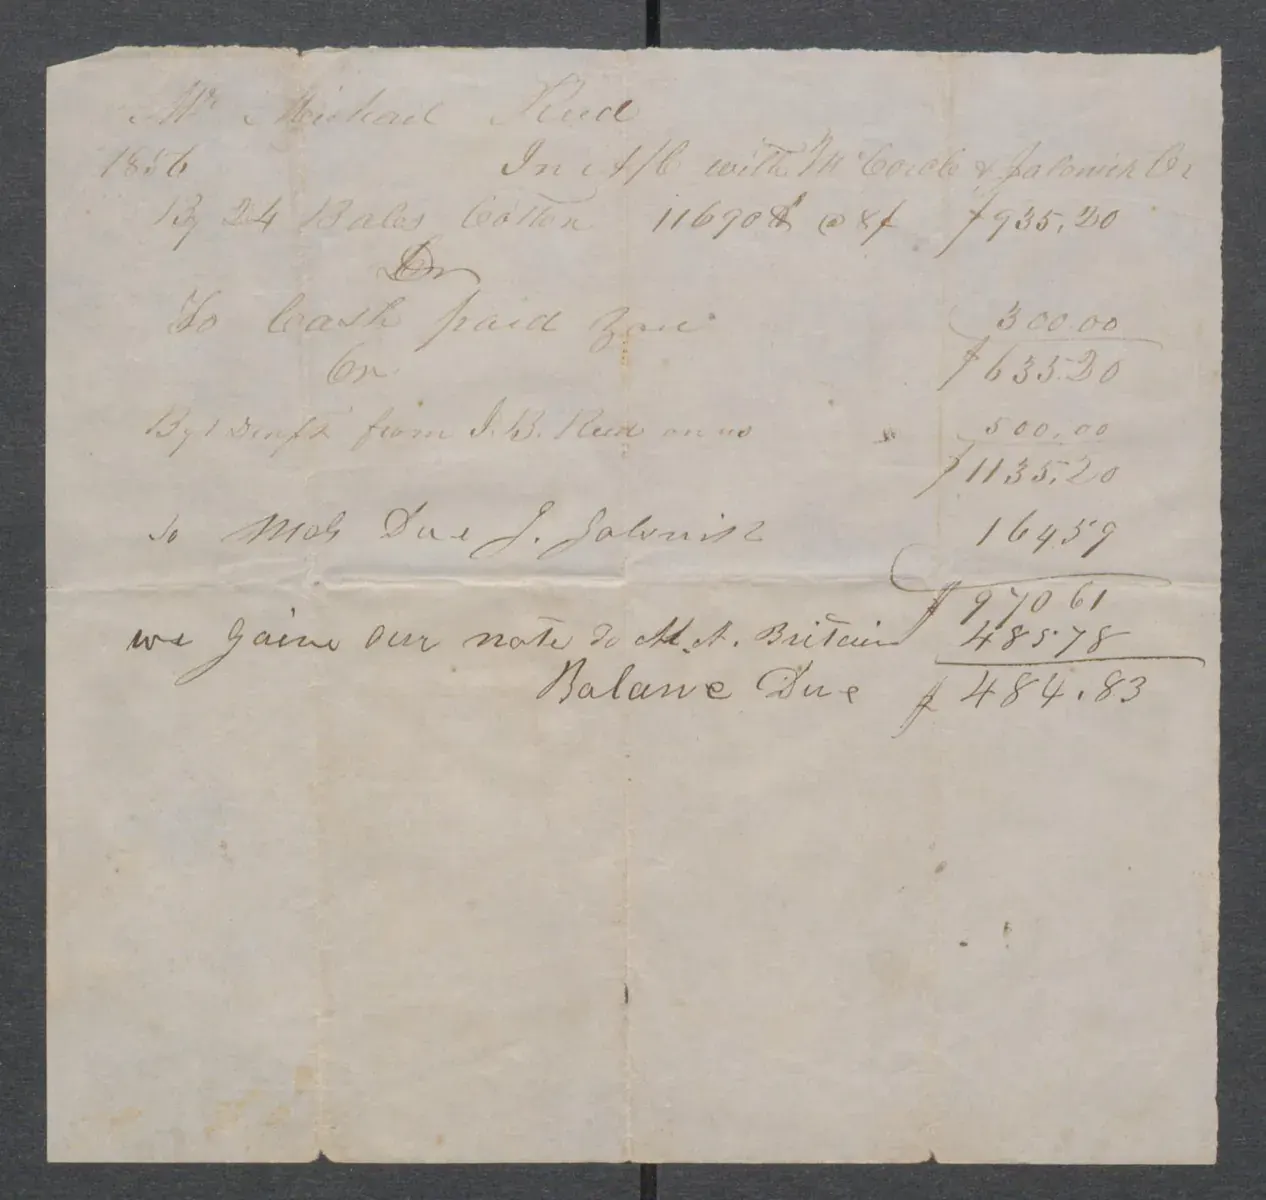 Mr Michael Reed
1856 In A/C with McCorcle & Jalonick Cr
By 24 Bales Cotton 11690 @ 8¢ $935.20
Dr
To Cash paid you 300.00
$635.20
Cr
By 1 Draft from J. B. Reed on us 500.00
$1135.20
To Mds Due J. Jalonick 164 59
$970 61
we gaive our note to A. Britain 485 78
Balance Due $484.83